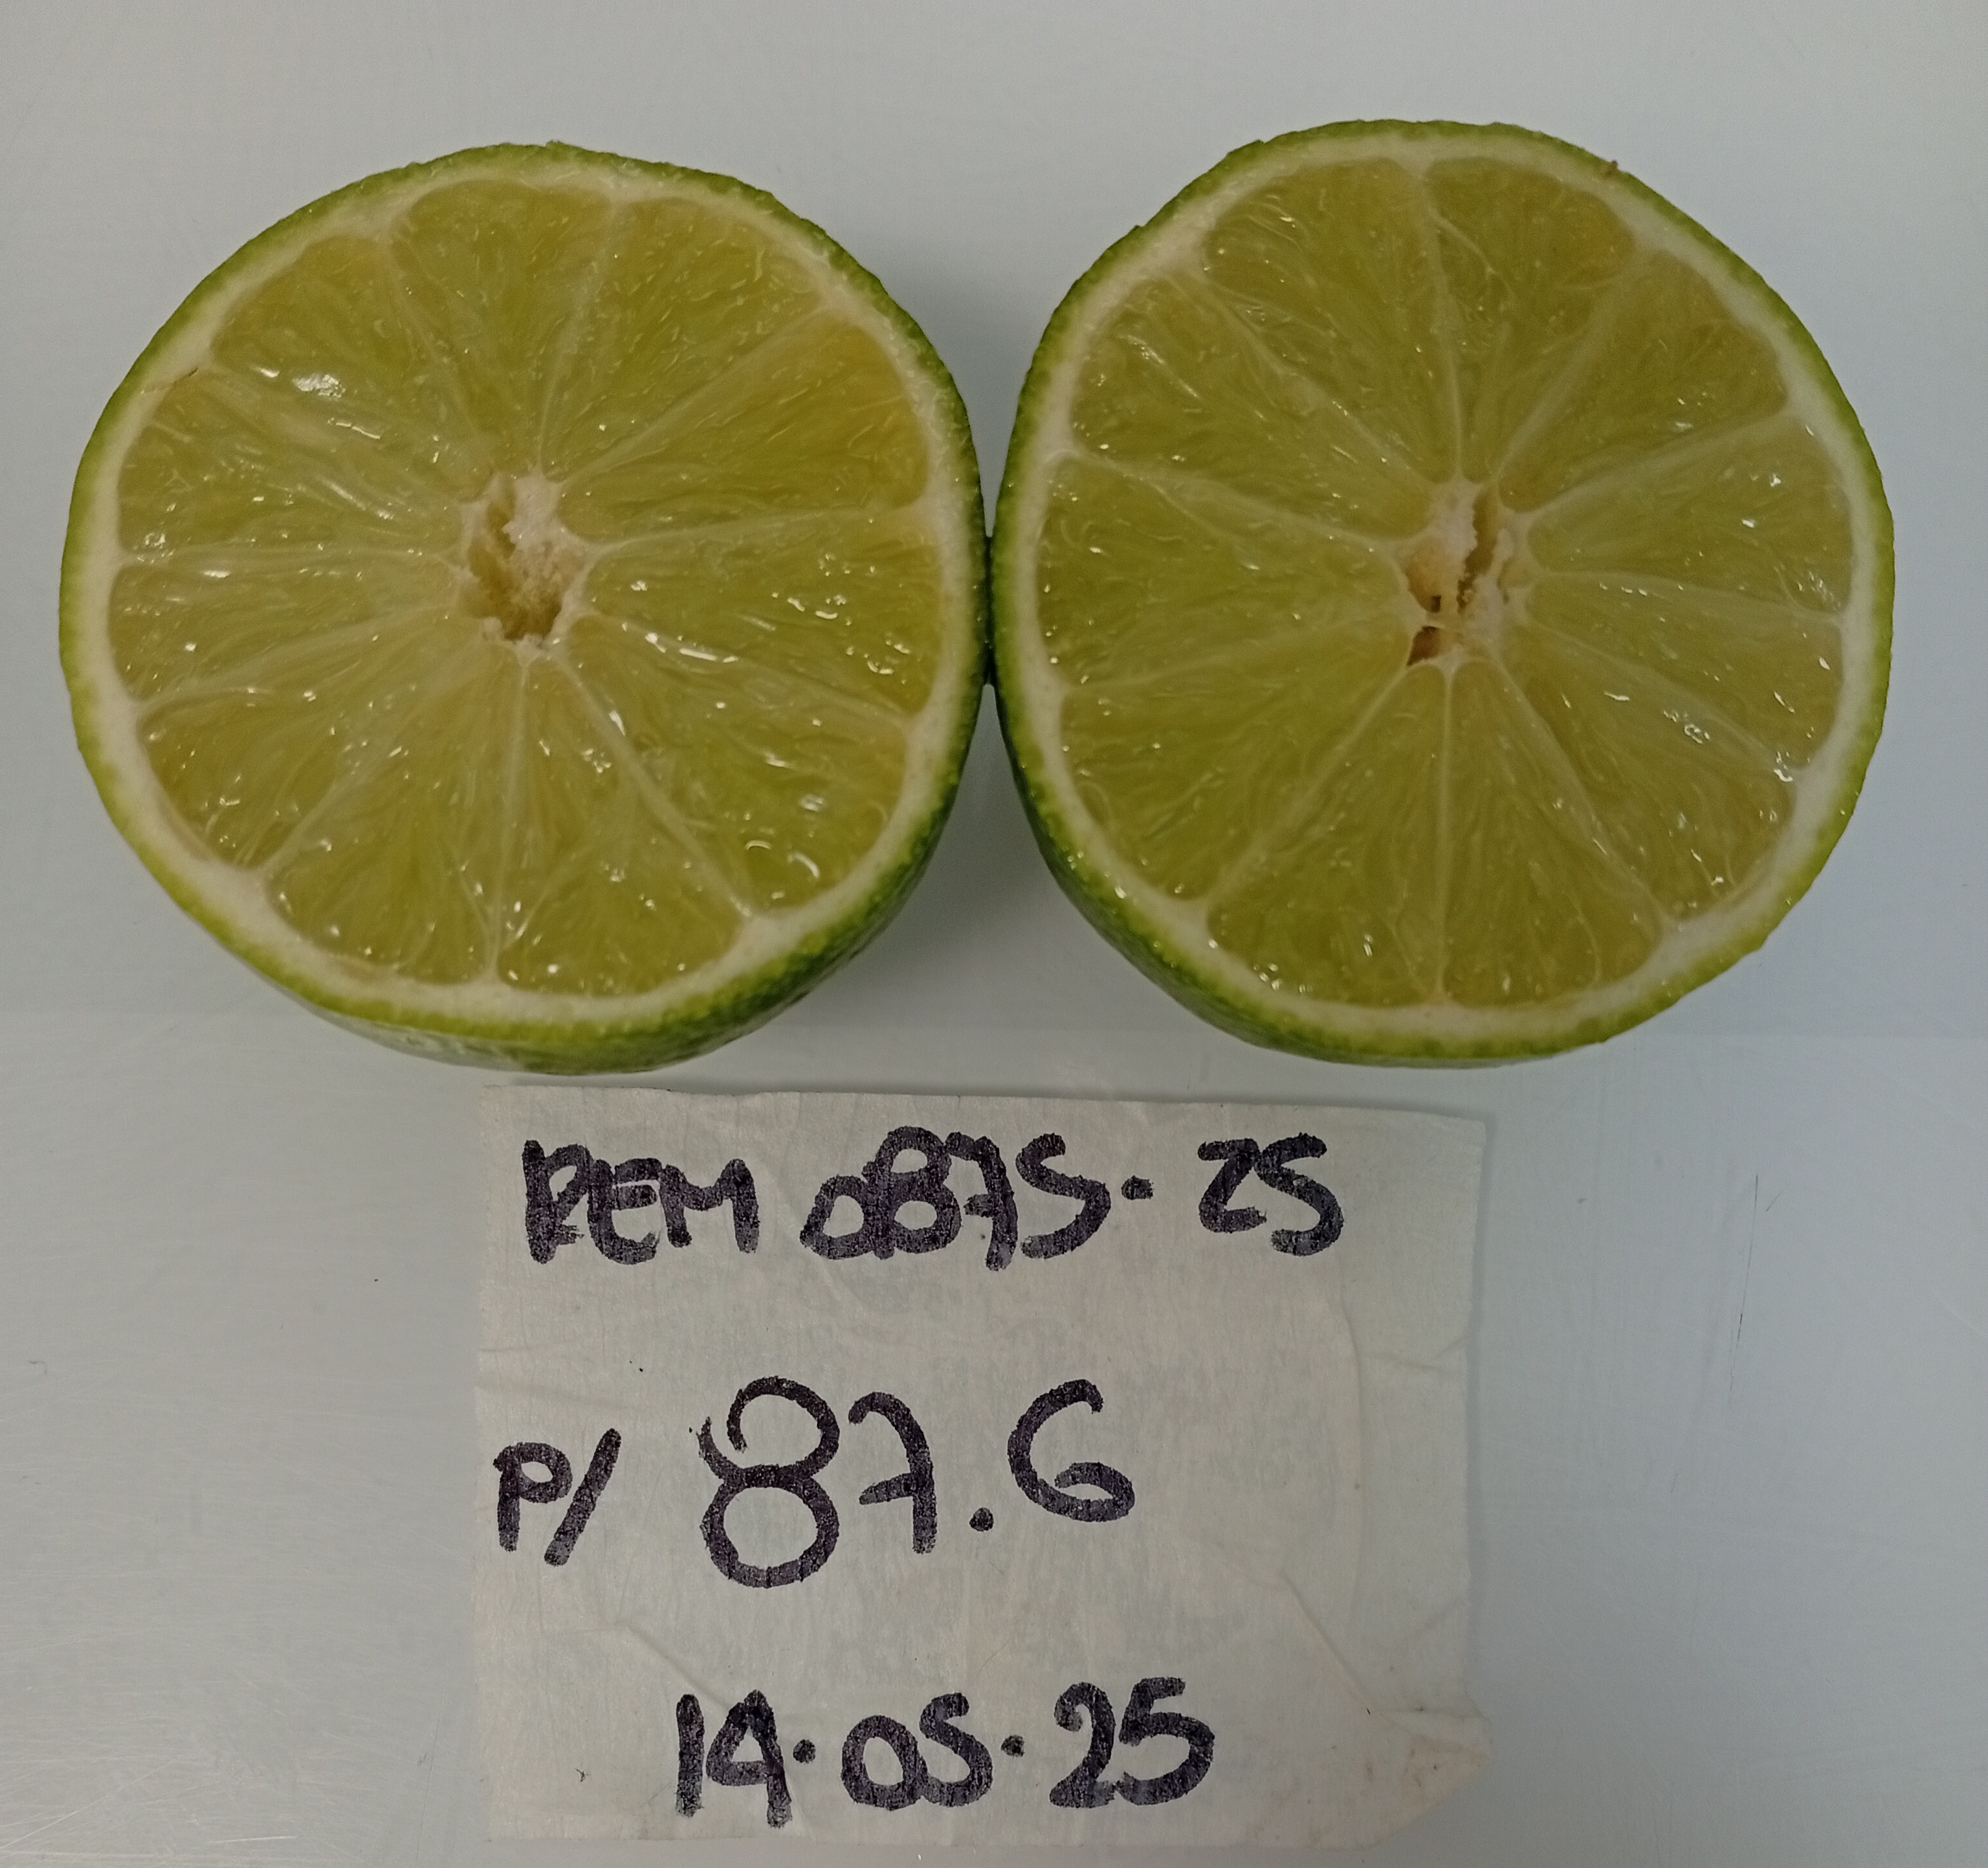 REM 0875. 25
P/ 87.6
14.05.25